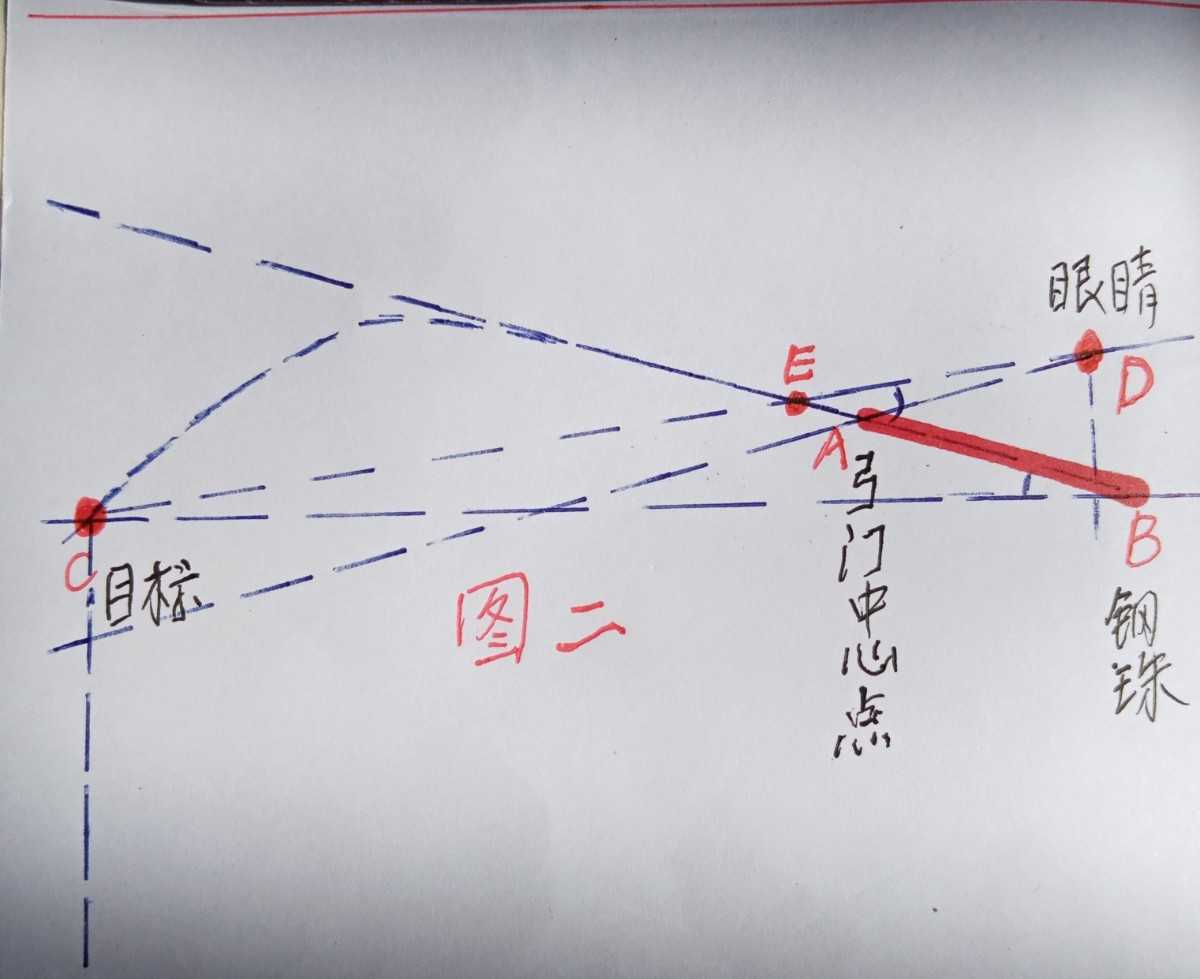 眼睛
E
D
A
弓门中心点
B
C
目标
图二
钢珠